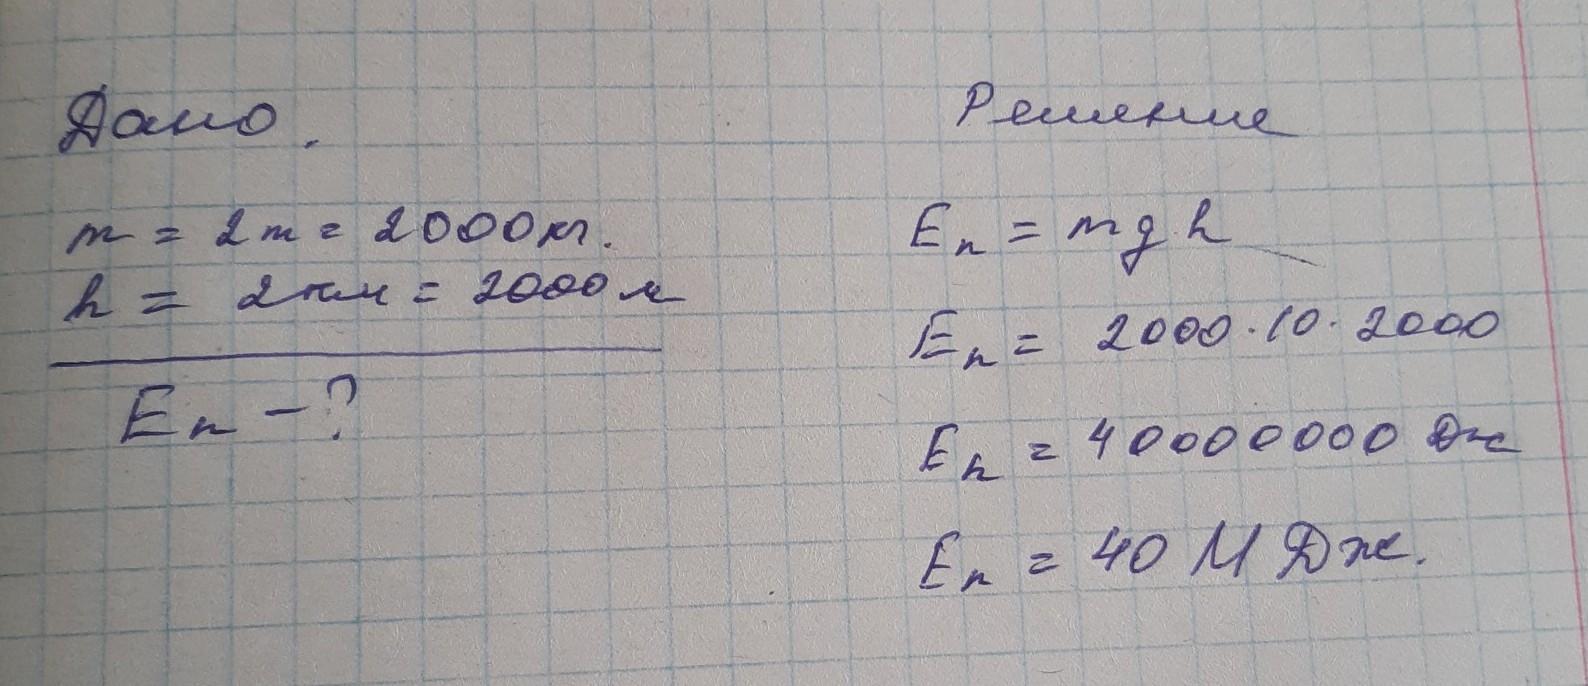 Дано.
m = 2т = 2000кг.
h = 2км = 2000м
Eп - ?
Решение
Eп = mgh
Eп = 2000·10·2000
Eп = 40000000 Дж
Eп = 40 МДж.